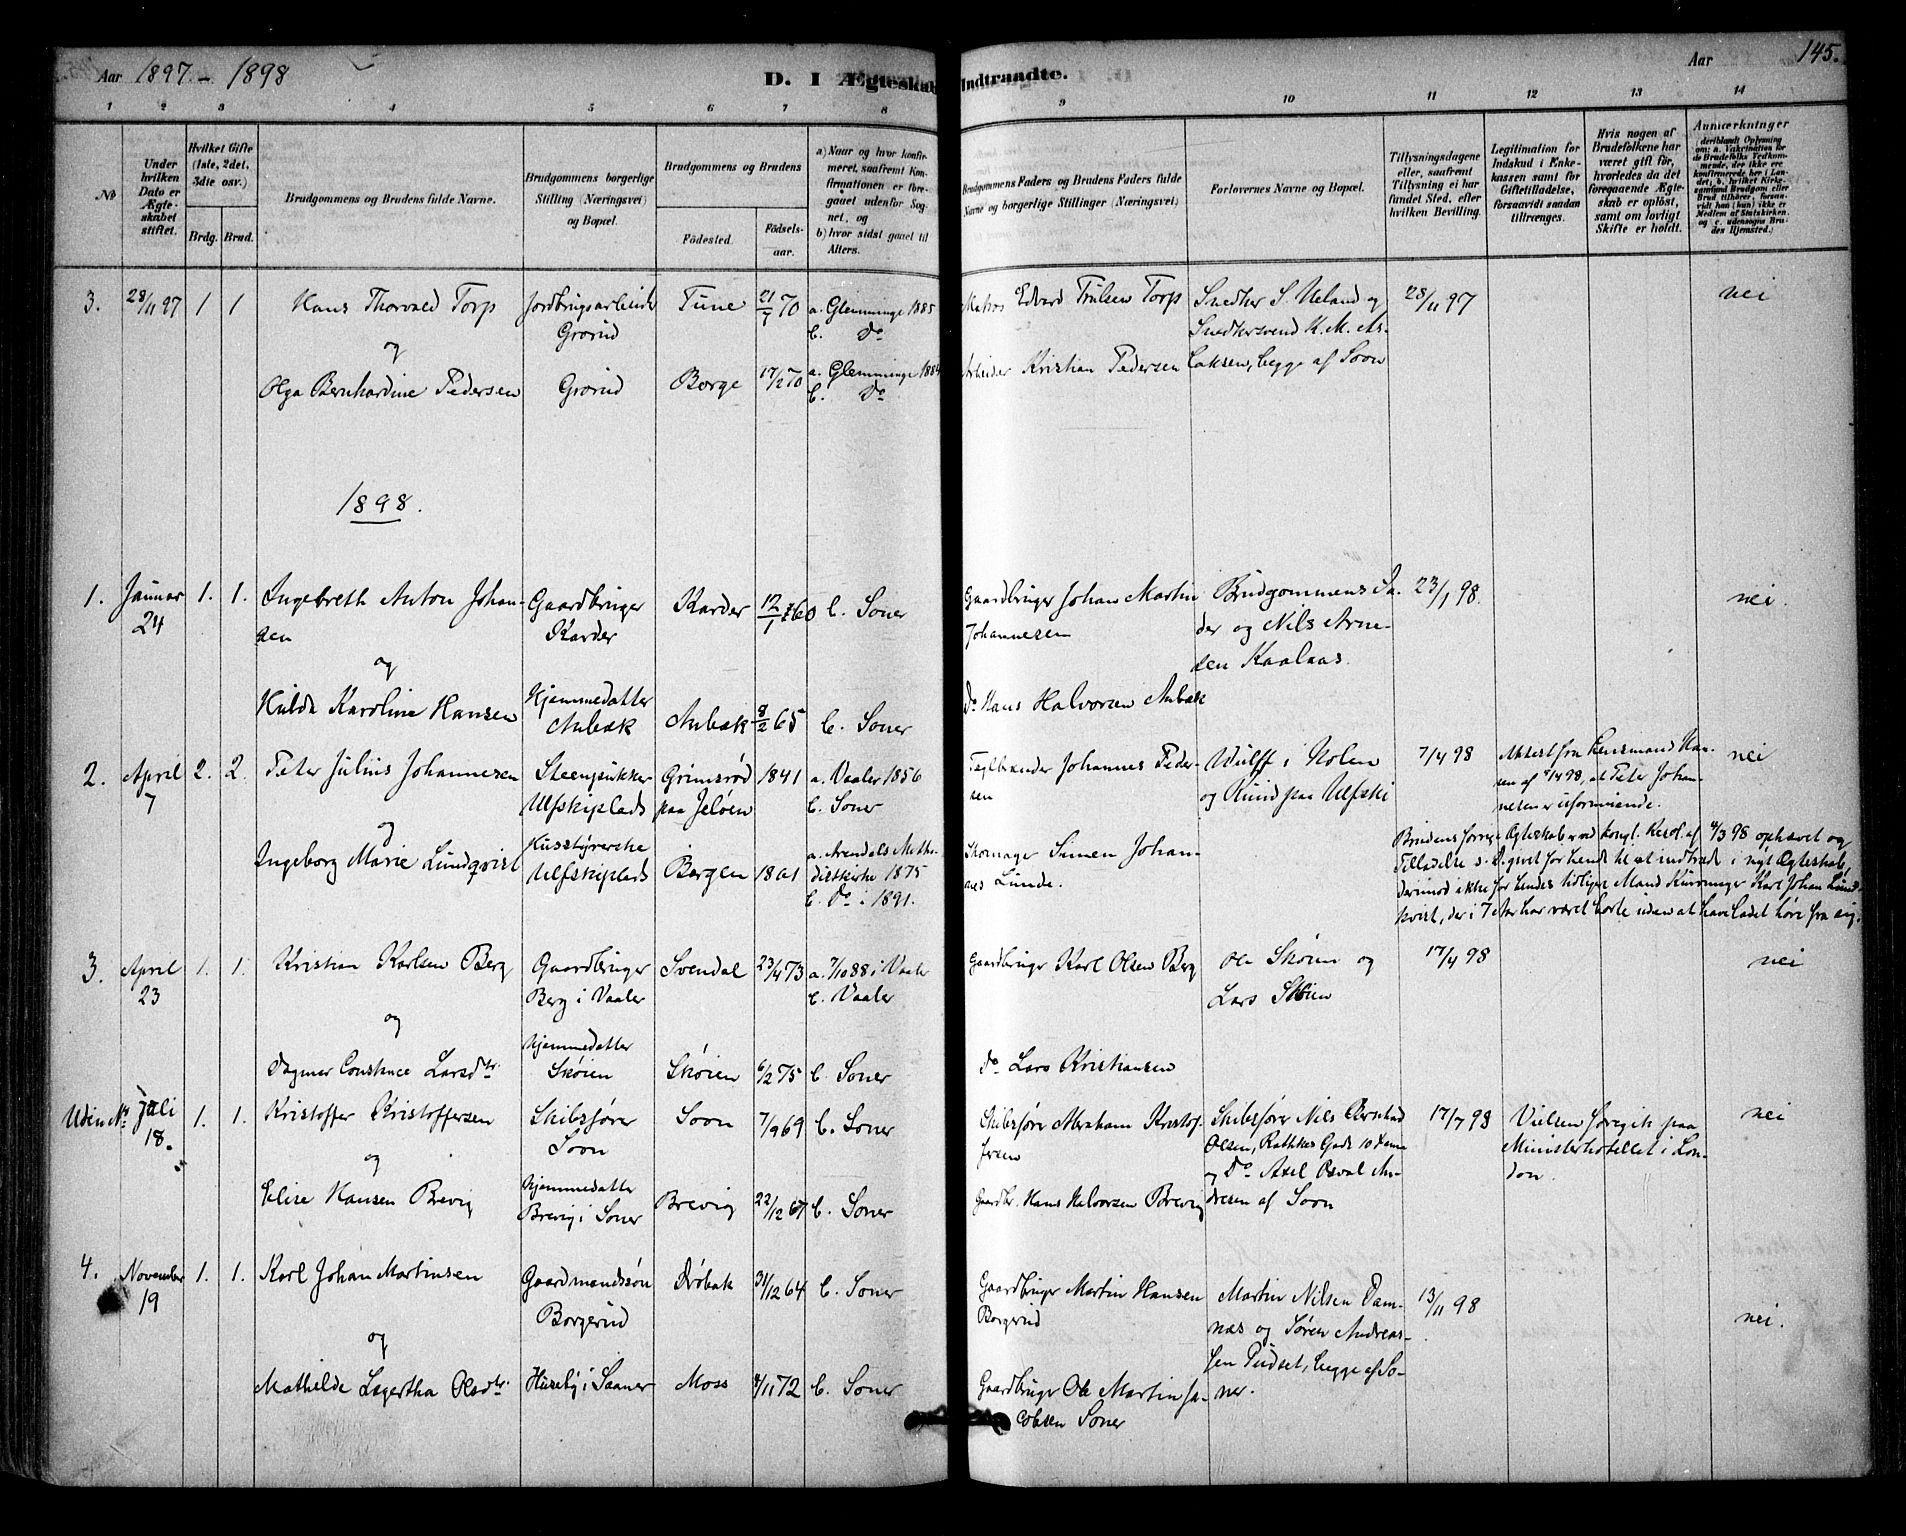 Aar 1897 - 1898
D. I Ægteskab Indtraadte.
Aar
145.
1 2 3 4 5 6 7 8 9 10 11 12 13 14
No
Under hvilken Dato er Ægteskabet stiftet.
Hvilket Gifte (1ste, 2det, 3die osv.)
Brdg. Brud.
Brudgommens og Brudens fulde Navne.
Brudgommens borgerlige Stilling (Næringsvei) og Bopæl.
Brudgommens og Brudens
Födested. Födselsaar.
a) Naar og hvor konfirmeret, saafremt Konfirmationen er foregaaet udenfor Sognet, og
b) hvor sidst gaaet til Alters.
Brudgommens Faders og Brudens Faders fulde Navne og borgerlige Stillinger (Næringsvei)
Forlovernes Navne og Bopæl.
Tillysningsdagene eller, saafremt Tillysning ei har fundet Sted, efter hvilken Bevilling.
Legitimation for Indskud i Enkekassen samt for Giftetilladelse, forsaavidt saadan tiltrænges.
Hvis nogen af Brudefolkene har været gift för, hvorledes da det foregaaende Ægteskab er oplöst, samt om lovligt Skifte er holdt.
Anmærkninger
3. 28/11 97 1 1 Hans Thorvald Torp Jordbrugsarbeider Grorud Tune 21/7 70 a. Glemminge 1885 b. Do
Matros Edvard Trulsen Torp
Snedker S. Ueland og Snedkersvend K. M. Aslaksen, begge af Soon
28/11 97
nei
og
Olga Bernhardine Pedersen Grorud Borge 17/2 70 a. Glemminge 1884 b. Do
Arbeider Kristian Pedersen
1898.
1. Januar 24 1. 1. Ingebreth Anton Johansen Gaardbruger Karder Karder 12/1 60 b. Soner
Gaardbruger Johan Martin Johannesen
Brudgommens Fader og Nils Arnesen Kaalaas.
23/1 98.
nei.
og
Hulda Karoline Hansen Hjemmedatter Aubæk Aubæk 8/2 65 b. Soner
Do Hans Halvorsen Aubæk
2. April 7 2. 2. Peter Julius Johannesen Steenhukker Ulfskiplads Grimsrød paa Jeløen 1841 a. Vaaler 1856 b. Soner
Teglbrænder Johannes Pedersen
Wulff i Holen og Rund paa Ulfski
7/4 98
Attest fra Lensmand Hansen af 4/4 98, at Peter Johannesen er uformuende.
nei
og
Ingeborg Marie Lundqvist Husstyrerske Ulfskiplads Bergen 1861 a. Arendals Methodistkirke 1875 b. Do i 1891.
Skomager Simen Johannes Lunde.
Brudens forrige Ægteskab er ved kongl. Resol. af 4/3 98 ophævet og
Tilladelse s. D. givet for hende til at indtræde i nyt Ægteskab,
derimod ikke for hendes tidligere Mand Kurvmager Karl Johan Lund-
kvist, der i 7 Aar har været borte uden at have ladet høre fra sig.
3. April 23 1. 1. Kristian Karlsen Berg Gaardbruger Berg i Vaaler Svendal 23/4 73 a. 7/10 88 i Vaaler b. Vaaler
Gaardbruger Karl Olsen Berg
Ole Skøien og Lars Skøien
17/4 98
nei
og
Dagmar Constance Larsdtr. Hjemmedatter Skøien Skøien 6/2 75 b. Soner
Do Lars Kristiansen
Uden No Juli 18. 1. 1. Kristoffer Kristoffersen Skibsfører Soon Soon 7/9 69 b. Soner
Skibsfører Abraham Kristoffersen
Skibsfører Nils Bernhard Olsen, Rathkes Gade 10 Xania og Do Axel Osval Andresen af Soon
17/7 98
Vielsen foregik paa Ministerhotellet i London.
nei
og
Elise Hansen Brevig Hjemmedatter Brevig i Soner Brevig 22/12 67 b. Soner
Gaardbr. Hans Halvorsen Brevig
4. November 19 1. 1. Karl Johan Martinsen Gaardmandssøn Borgerud Drøbak 31/12 64 b. Soner
Gaardbruger Martin Hansen Borgerud
Martin Nilsen Damnæs og Søren Andreassen Pudset, begge af Soner.
13/11 98
nei.
og
Mathilde Lagertha Olsdtr. Huseby i Saaner Moss 4/11 72 b. Soner
Gaardbruger Ole Martin Jacobsen Soner